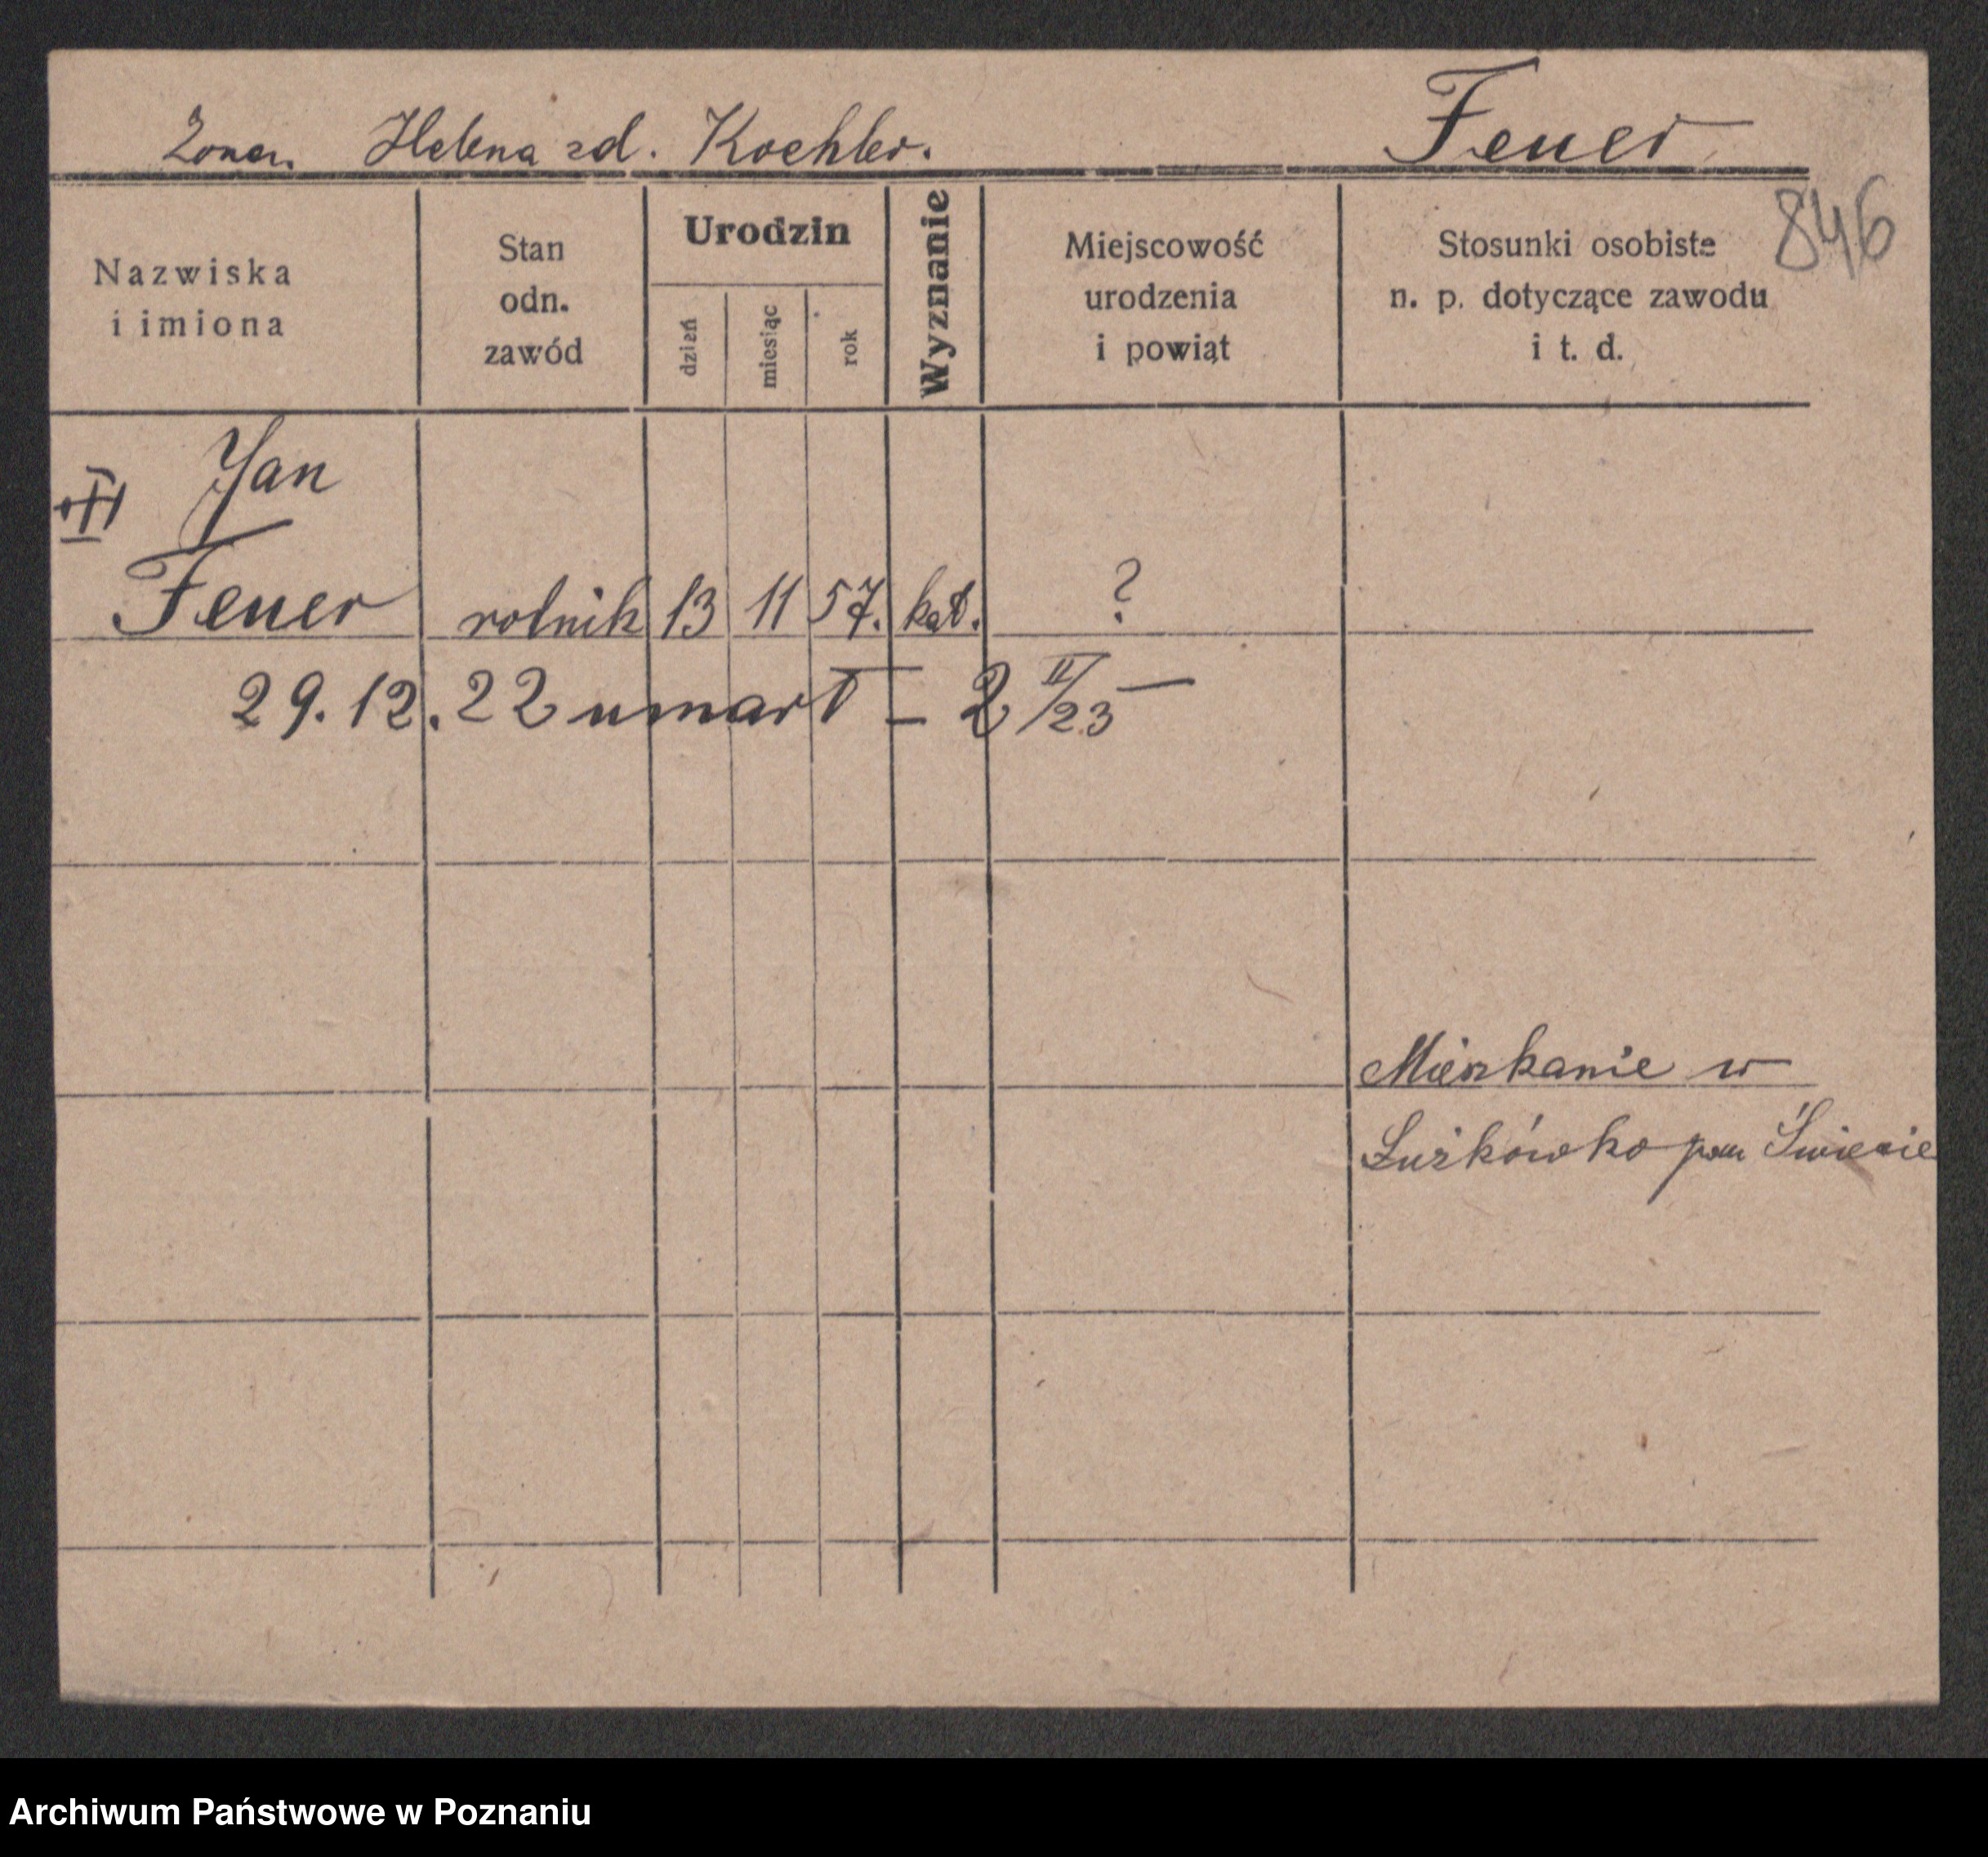 Żona. Helena zd. Koehler. Feuer
846
Nazwiska
i imiona
Stan
odn.
zawód
Urodzin
dzień
miesiąc
rok
Wyznanie
Miejscowość
urodzenia
i powiąt
Stosunki osobiste
n. p. dotyczące zawodu
i t. d.
Jan
Feuer rolnik 13 11 57. kat. ?
29.12.22 umart – 2 II/23 –
Mieszkanie w
Łuszkówko pow Świecie
Archiwum Państwowe w Poznaniu